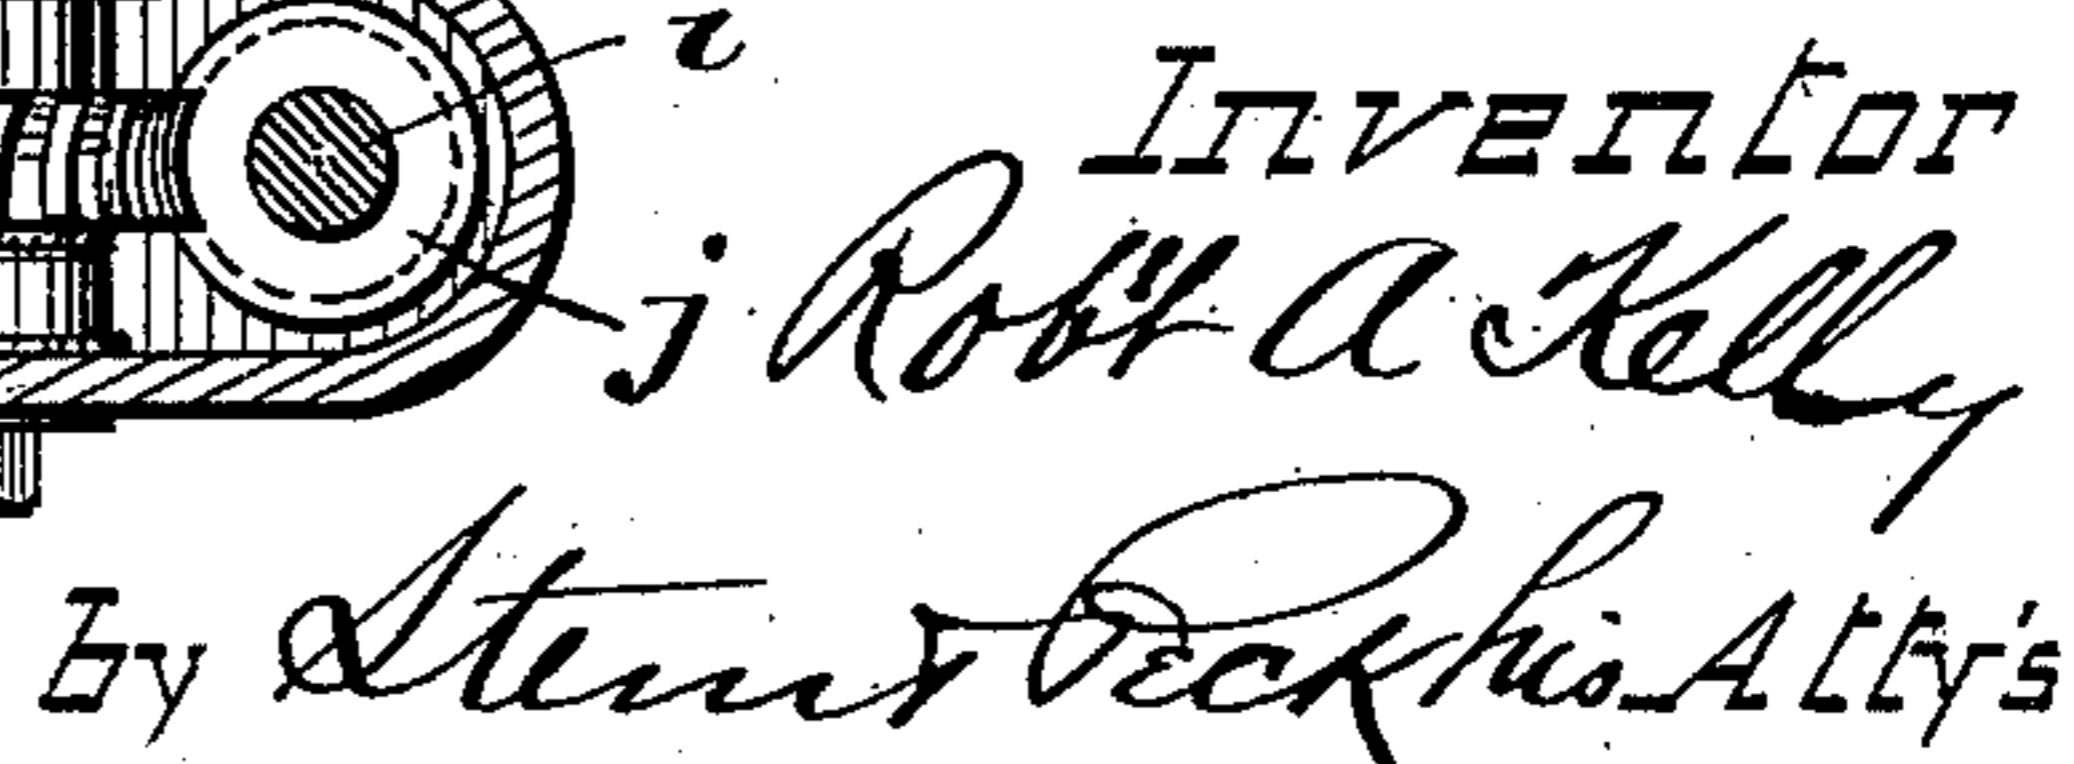 i
Inventor
j Robt A Kelly
by Stem & Peck his Atty's